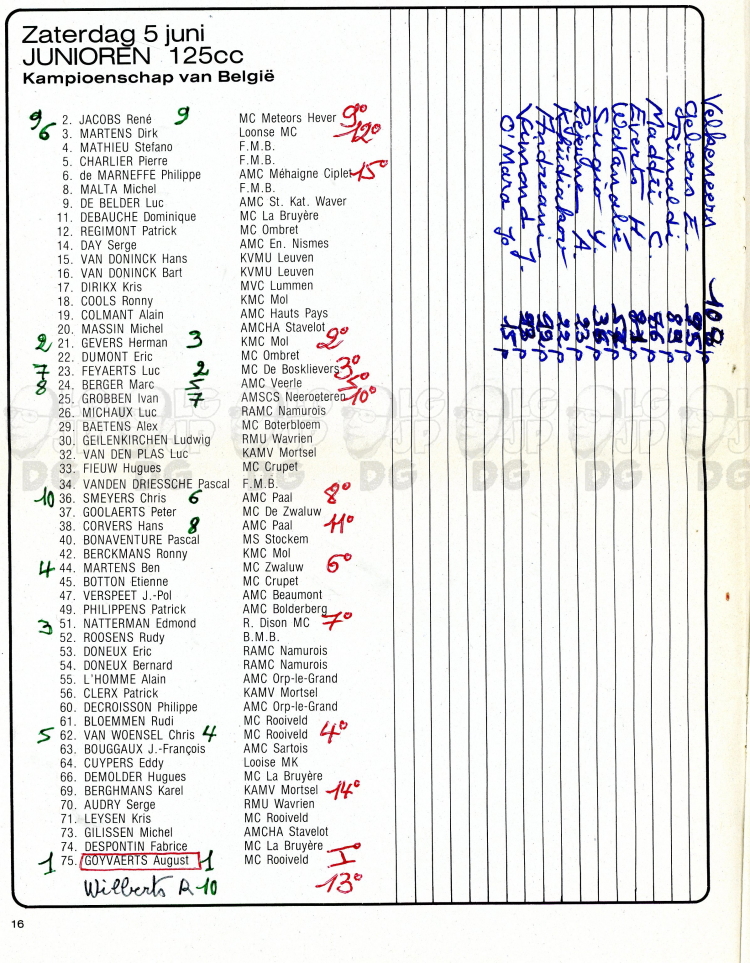 Zaterdag 5 juni
JUNIOREN 125cc
Kampioenschap van België
9 2. JACOBS René 9 MC Meteors Hever 9°
6 3. MARTENS Dirk Loonse MC 12°
4. MATHIEU Stefano F.M.B.
5. CHARLIER Pierre F.M.B.
6. de MARNEFFE Philippe AMC Méhaigne Ciplet 15°
8. MALTA Michel F.M.B.
9. DE BELDER Luc AMC St. Kat. Waver
11. DEBAUCHE Dominique MC La Bruyère
12. REGIMONT Patrick MC Ombret
14. DAY Serge AMC En. Nismes
15. VAN DONINCK Hans KVMU Leuven
16. VAN DONINCK Bart KVMU Leuven
17. DIRIKX Kris MVC Lummen
18. COOLS Ronny KMC Mol
19. COLMANT Alain AMC Hauts Pays
20. MASSIN Michel AMCHA Stavelot
2 21. GEVERS Herman 3 KMC Mol 2°
22. DUMONT Eric MC Ombret
7 23. FEYAERTS Luc 2 MC De Bosklievers 3°
8 24. BERGER Marc 5 AMC Veerle 5°
25. GROBBEN Ivan 7 AMSCS Neeroeteren 10°
26. MICHAUX Luc RAMC Namurois
29. BAETENS Alex MC Boterbloem
30. GEILENKIRCHEN Ludwig RMU Wavrien
32. VAN DEN PLAS Luc KAMV Mortsel
33. FIEUW Hugues MC Crupet
34. VANDEN DRIESSCHE Pascal F.M.B.
10 36. SMEYERS Chris 6 AMC Paal 8°
37. GOOLAERTS Peter MC De Zwaluw
38. CORVERS Hans 8 AMC Paal 11°
40. BONAVENTURE Pascal MS Stockem
42. BERCKMANS Ronny KMC Mol
4 44. MARTENS Ben MC Zwaluw 6°
45. BOTTON Etienne MC Crupet
47. VERSPEET J.-Pol AMC Beaumont
49. PHILIPPENS Patrick AMC Bolderberg
3 51. NATTERMAN Edmond R. Dison MC 7°
52. ROOSENS Rudy B.M.B.
53. DONEUX Eric RAMC Namurois
54. DONEUX Bernard RAMC Namurois
55. L'HOMME Alain AMC Orp-le-Grand
56. CLERX Patrick KAMV Mortsel
60. DECROISSON Philippe AMC Orp-le-Grand
61. BLOEMMEN Rudi MC Rooiveld
5 62. VAN WOENSEL Chris 4 MC Rooiveld 4°
63. BOUGGAUX J.-François AMC Sartois
64. CUYPERS Eddy Looise MK
66. DEMOLDER Hugues MC La Bruyère
69. BERGHMANS Karel KAMV Mortsel 14°
70. AUDRY Serge RMU Wavrien
71. LEYSEN Kris MC Rooiveld
73. GILISSEN Michel AMCHA Stavelot
74. DESPONTIN Fabrice MC La Bruyère
1 75. GOYVAERTS August 1 MC Rooiveld 1°
Wilberts R 10 13°
16
Velkeneers 108 p
Geboers E. 95 p
Rinaldi p
Maddii C. p
Everts H. p
Watanabe p
Suguo Y. 36 p
A. 23 p
22 p
Andreani p
Vimond J. p
O'Mara Jo 15 p
DG
LG
JP